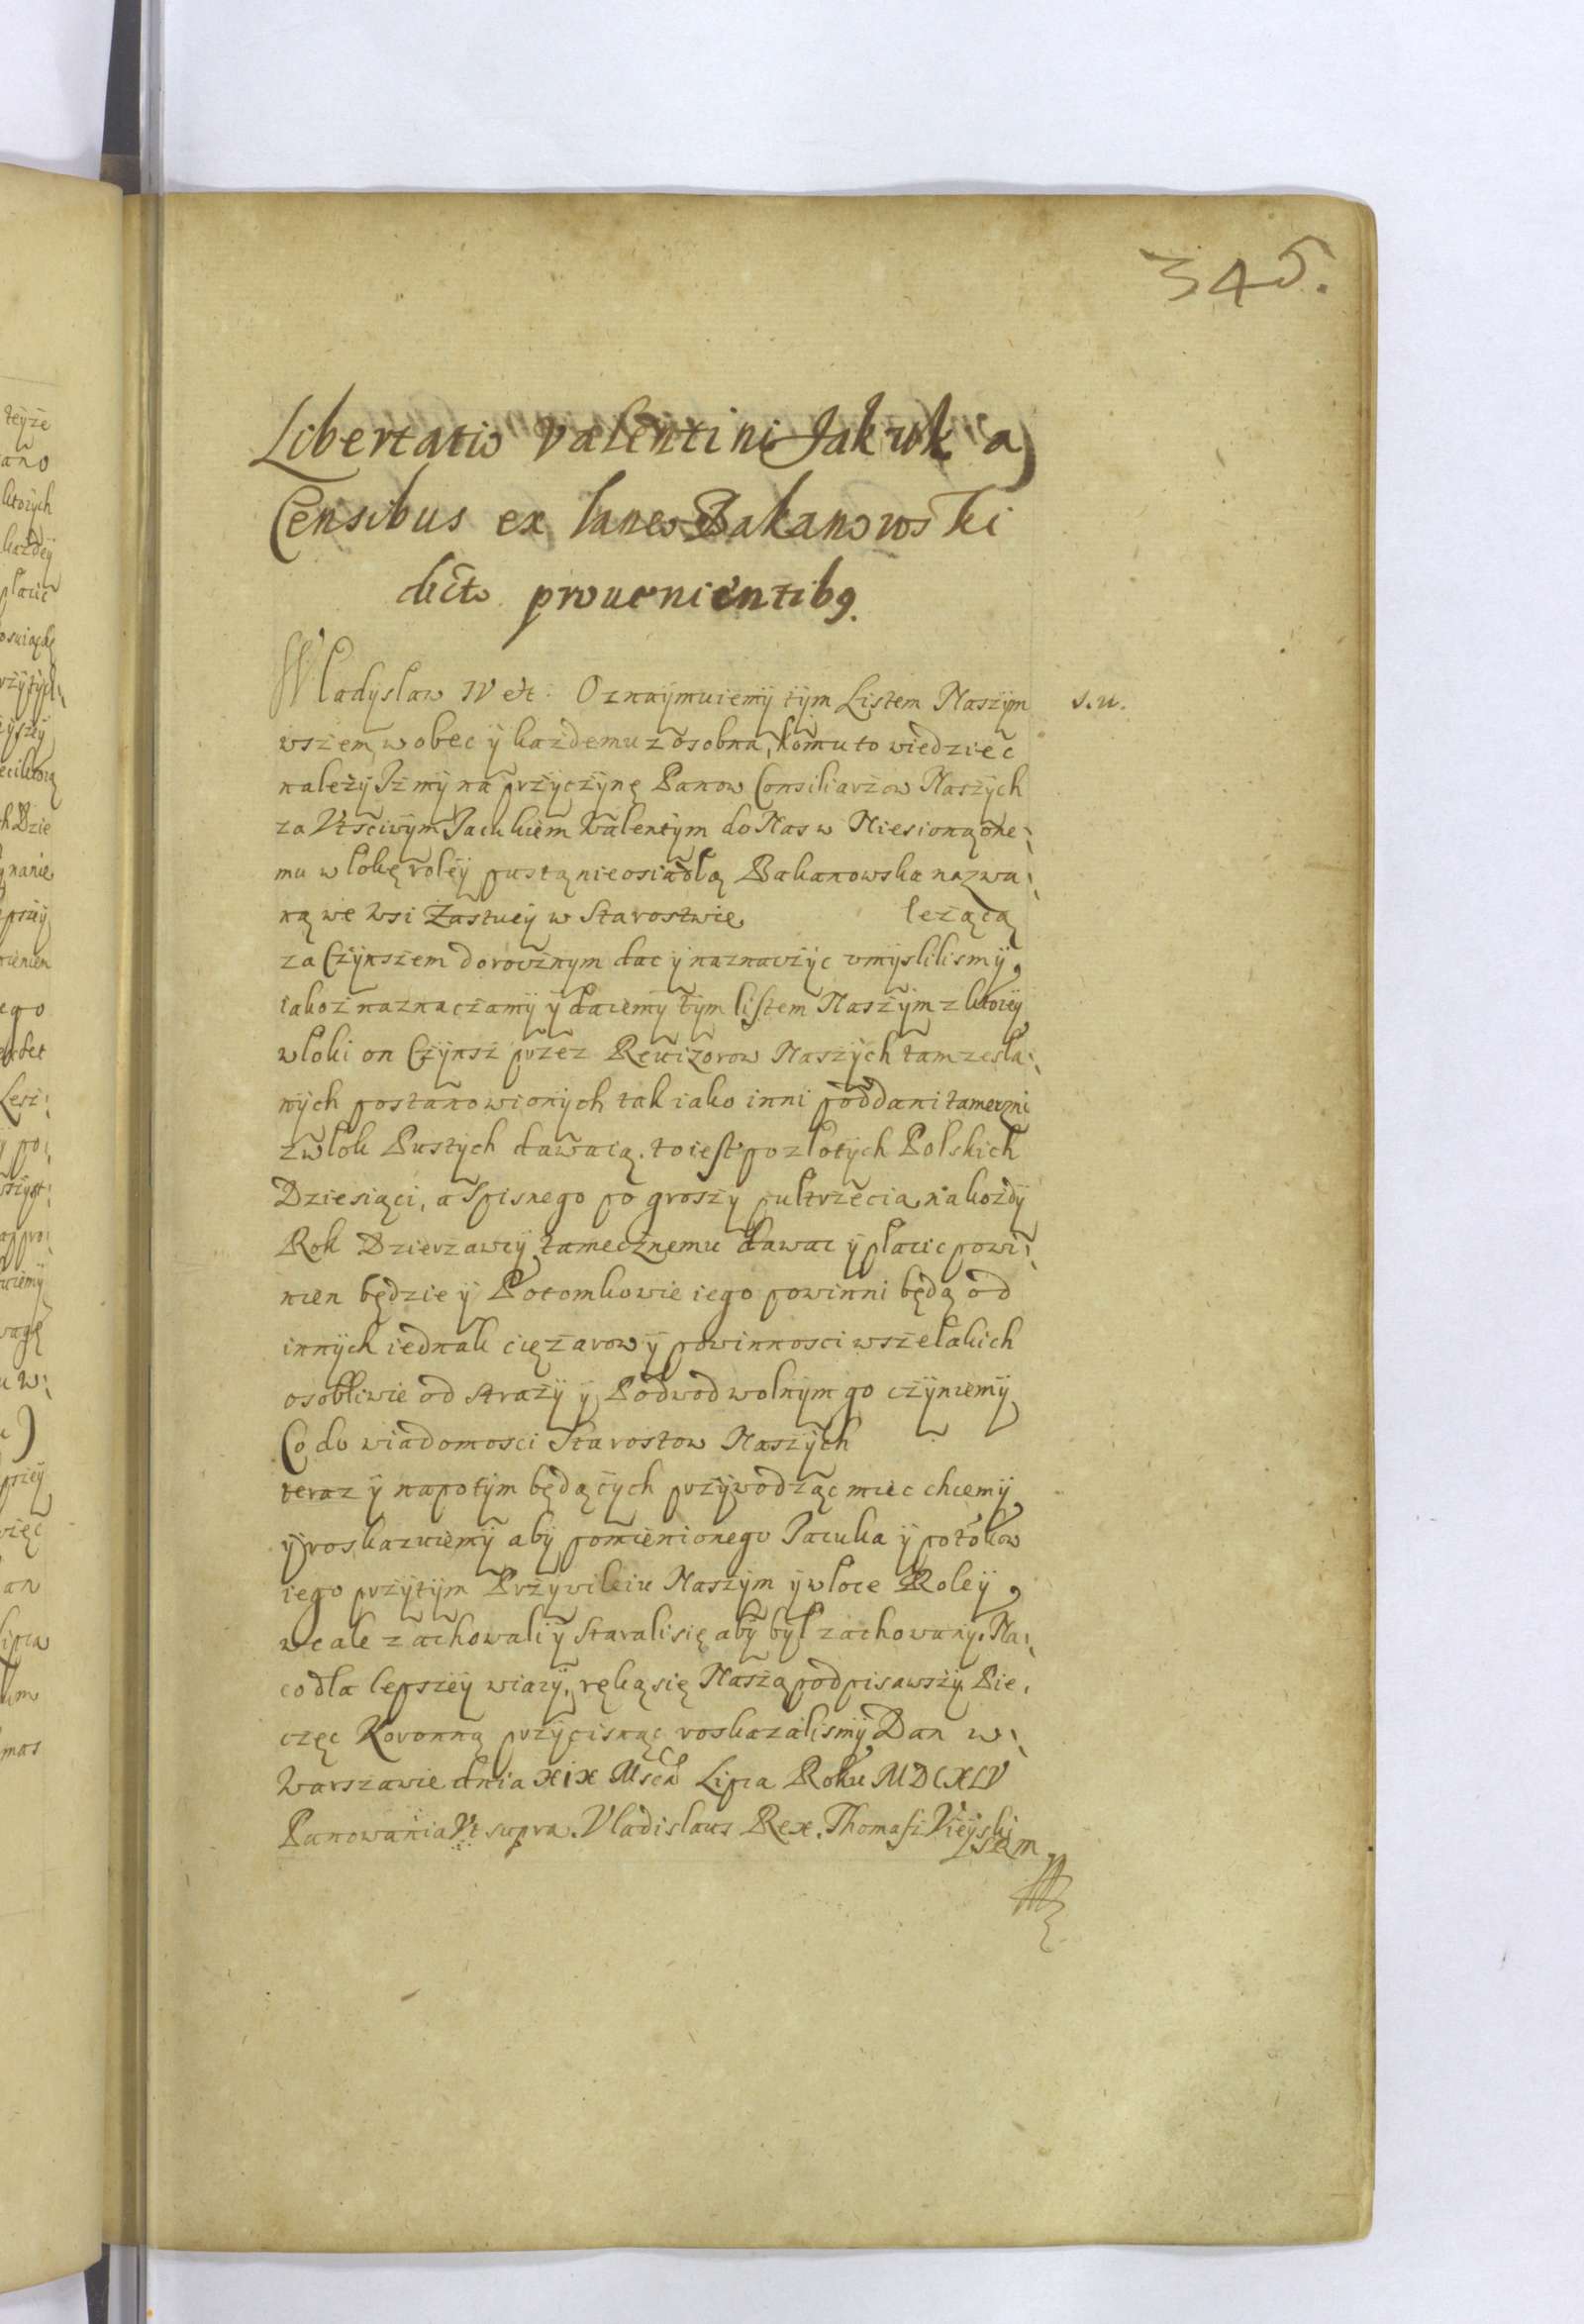 345.
Libertatio Valentini Jakuk a
Censibus ex laneo Bakanowski
dicto prouenientibq.
Wladysław IV etc: Oznaymuiemy tym Listem Naszym s.u.
wszem wobec y każdemu z osobna, komu to wiedziec
należy Iż my na przyczynę Panow Consiliarzow Naszych
za Vtsciwym Jacukiem Walentym do Nas w Niesioną one¡
mu wlokę roley pustą nieosiadłą Bakanowska nazwa¡
ną we Wsi w Starostwie leżącą
za Czynszem dorocznym dac y naznaczyc vmyslilismy,
iakoż naznaczamy y daiemy tym listem Naszym z ktorey
wloki on Czynsz przez Rewizorow Naszych tam zesła¡
nych postanowionych tak iako inni poddani tameczni
z wlok Pustych dawaią. to iest po złotych Polskich
Dziesiąci, a Spisnego po groszy pultrzecia na kożdy
Rok Dzierzawcy tamecznemu dawac y placic powi¡
nien będzie y Potomkowie iego powinni będą od
innych iednak ciężarow y powinnosci wszelakich
osobliwie od straży y Podwod wolnym go czyniemy
Co do wiadomosci Starostow Naszych
teraz y napotym będących przywodząc miec chcemy
y roskazuiemy aby pomienionego Jacuka y potōkow
iego przytym Przywileiu Naszym y wloce Roley,
wcale zachowali y starali się aby był zachowany. Na¡
co dla lepszey wiary, ręką się Naszą podpisawszy Pie¡
częc Koronną przycisnąc roskazalismy. Dan w¡
Warszawie dnia XIX Msca Lipca Roku MDCXLV
Panowania Vt supra. Vladislaus Rex. Thomasz Vieyski
SRM